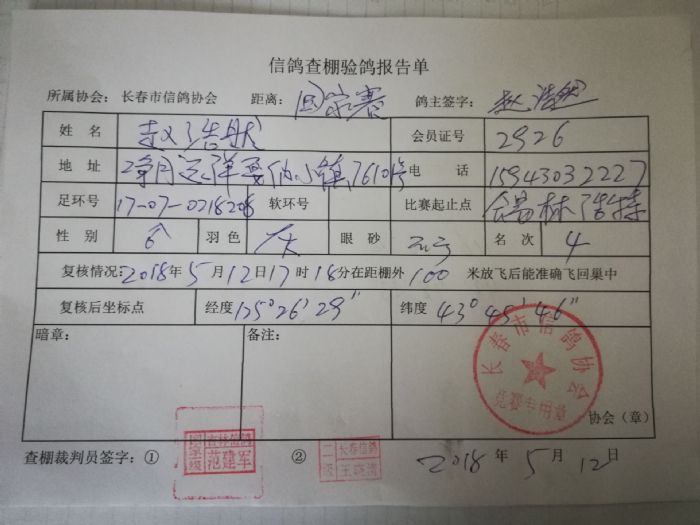 信鸽查棚验鸽报告单
所属协会：长春市信鸽协会 距离：国家赛 鸽主签字：赵浩然
姓名 赵浩然 会员证号 2926
地址 净月远洋戛纳小镇7610号 电话 15943032227
足环号 17-07-0218208 软环号 比赛起止点 锡林浩特
性别 羽色 灰 眼砂 名次 4
复核情况：2018年5月12日17时16分在距棚外100米放飞后能准确飞回巢中
复核后坐标点 经度 125°26′29″ 纬度 43°45′46″
暗章： 备注：
长春市信鸽协会
竞赛专用章
协会（章）
国家级 吉林信鸽 范建军
二级 长春信鸽
查棚裁判员签字：① ② 2018年5月12日